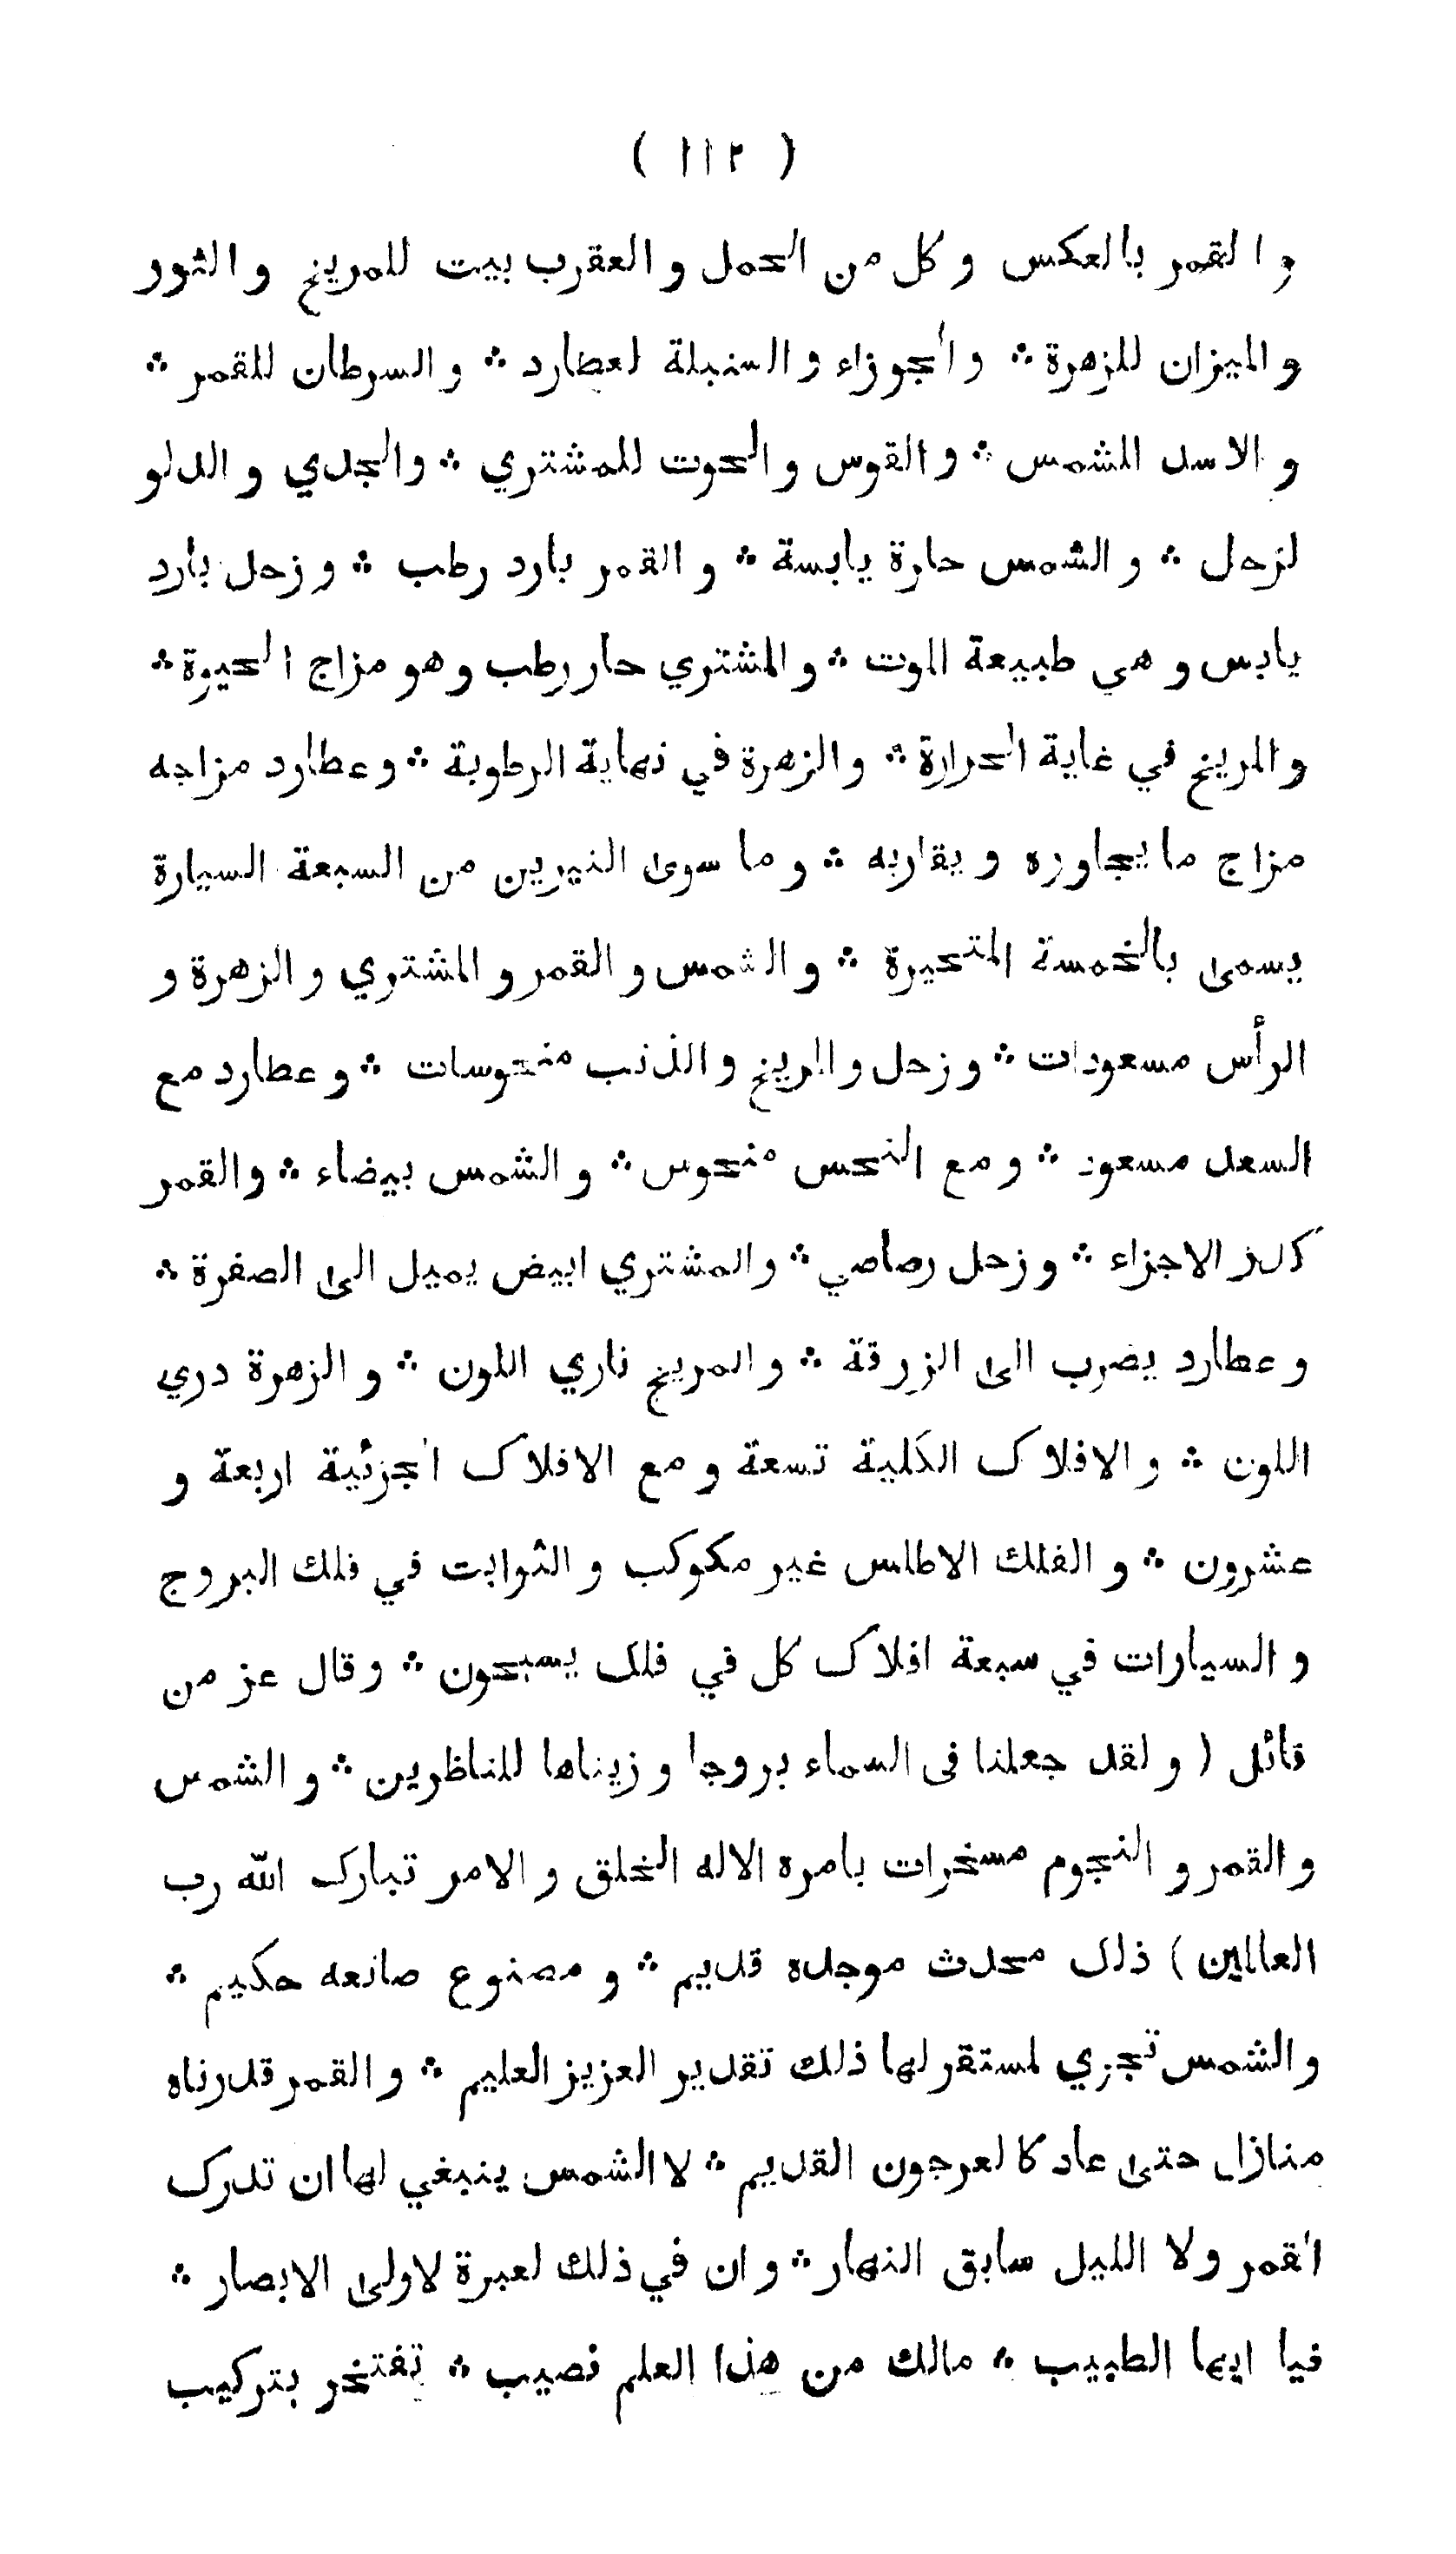 ( ١١٢ )
والقمر بالعكس وكل من الحمل والعقرب بيت للمريخ والثور
والميزان للزهرة ⁂ والجوزاء والسنبلة لعطارد ⁂ والسرطان للقمر ⁂
والاسد للشمس ⁂ والقوس والحوت للمشتري ⁂ والجدي والدلو
لزحل ⁂ والشمس حارة يابسة ⁂ والقمر بارد رطب ⁂ وزحل بارد
يابس وهي طبيعة الموت ⁂ والمشتري حار رطب وهو مزاج الحيوة ⁂
والمريخ في غاية الحرارة ⁂ والزهرة في نهاية الرطوبة ⁂ وعطارد مزاجه
مزاج ما يجاوره ويقاربه ⁂ وما سوى النيرين من السبعة السيارة
يسمى بالخمسة المتحيرة ⁂ والشمس والقمر والمشتري والزهرة و
الرأس مسعودات ⁂ وزحل والمريخ والذنب منحوسات ⁂ وعطارد مع
السعد مسعود ⁂ ومع النحس منحوس ⁂ والشمس بيضاء ⁂ والقمر
كدر الاجزاء ⁂ وزحل رصاصي ⁂ والمشتري ابيض يميل الى الصفرة ⁂
وعطارد يضرب الى الزرقة ⁂ والمريخ ناري اللون ⁂ والزهرة دري
اللون ⁂ والافلاك الكلية تسعة ومع الافلاك الجزئية اربعة و
عشرون ⁂ والفلك الاطلس غير مكوكب والثوابت في فلك البروج
والسيارات في سبعة افلاك كل في فلك يسبحون ⁂ وقال عز من
قائل ( ولقد جعلنا فى السماء بروجا وزيناها للناظرين ⁂ والشمس
والقمر والنجوم مسخرات بامره الاله الخلق والامر تبارك الله رب
العالمين ) ذلك محدث موجده قديم ⁂ ومصنوع صانعه حكيم ⁂
والشمس تجري لمستقر لها ذلك تقدير العزيز العليم ⁂ والقمر قدرناه
منازل حتى عاد كالعرجون القديم ⁂ لا الشمس ينبغي لها ان تدرك
القمر ولا الليل سابق النهار ⁂ وان في ذلك لعبرة لاولى الابصار ⁂
فيا ايها الطبيب ⁂ مالك من هذا العلم نصيب ⁂ تفتخر بتركيب